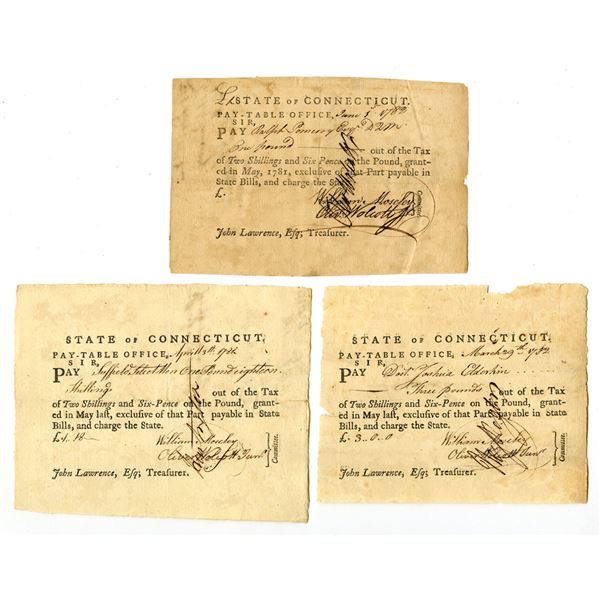 STATE OF CONNECTICUT.
PAY-TABLE OFFICE, June 1st 1782
SIR,
PAY Ralph Pomeroy Esqr D.Q.M.
One pound out of the Tax
of Two Shillings and Six Pence on the Pound, grant-
ed in May, 1781, exclusive of that Part payable in
State Bills, and charge the State.
£.
William Moseley
Olivr Wolcott Jr
Committee.
John Lawrence, Esq; Treasurer.
STATE OF CONNECTICUT.
PAY-TABLE OFFICE, April 1782
SIR,
PAY Suffield One Pound eighteen
Shillings out of the Tax
of Two Shillings and Six-Pence on the Pound, grant-
ed in May last, exclusive of that Part payable in State
Bills, and charge the State.
£1. 18
William Moseley
Oliver Wolcott Junr
Committee.
John Lawrence, Esq; Treasurer.
STATE OF CONNECTICUT.
PAY-TABLE OFFICE, March 29th 1782
SIR,
PAY Doct. Joshua Elderkin
Three pounds out of the Tax
of Two Shillings and Six-Pence on the Pound, grant-
ed in May last, exclusive of that Part payable in State
Bills, and charge the State.
£3.0.0
William Moseley
Oliver Wolcott Junr
Committee.
John Lawrence, Esq; Treasurer.